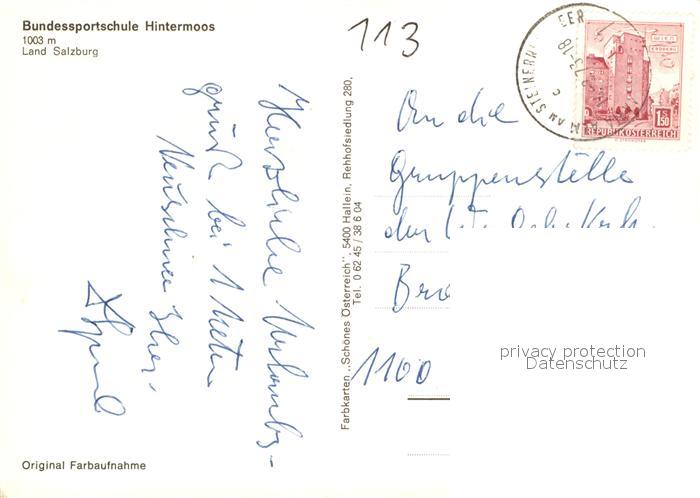 Bundessportschule Hintermoos
1003 m
Land Salzburg
113
Herzliche Urlaubs-
grüße bei 1 Meter
Neuschnee Ihr
Original Farbaufnahme
Farbkarten „Schönes Österreich", 5400 Hallein, Rehhofsiedlung 280,
Tel. 0 62 45 / 38 6 04
WIEN
ERDBERG
1.50
REPUBLIK ÖSTERREICH
AM STEINERN
EER
73-18
An die
Gruppenstelle
der
1100
privacy protection
Datenschutz